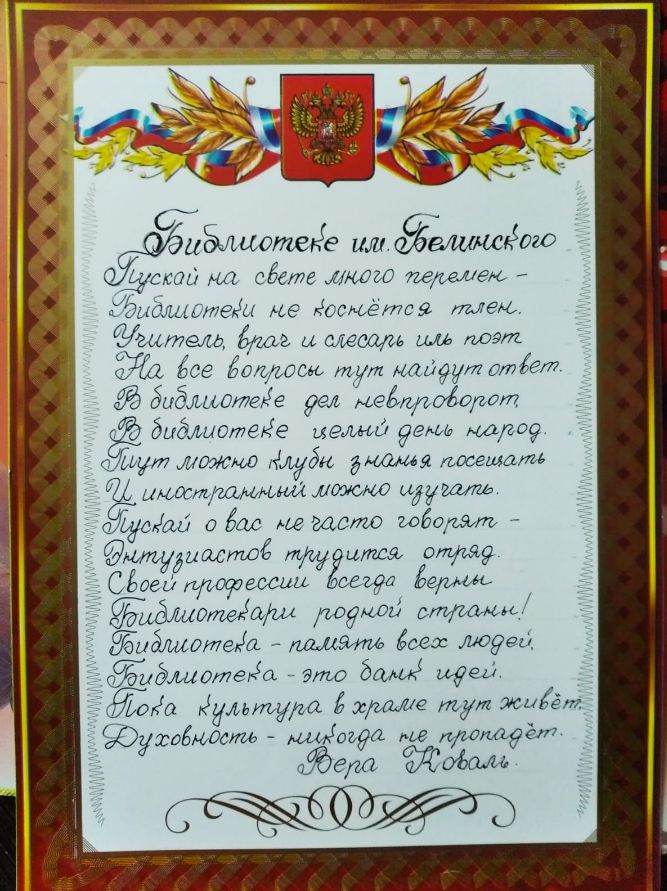 Библиотеке им. Белинского
Пускай на свете много перемен -
Библиотеки не коснётся тлен.
Учитель, врач и слесарь иль поэт
На все вопросы тут найдут ответ.
В библиотеке дел невпроворот,
В библиотеке целый день народ.
Тут можно клубы знанья посещать
И иностранный можно изучать.
Пускай о вас не часто говорят -
Энтузиастов трудится отряд.
Своей профессии всегда верны
Библиотекари родной страны!
Библиотека - память всех людей,
Библиотека - это банк идей.
Пока культура в храме тут живёт,
Духовность - никогда не пропадёт.
Вера Коваль.